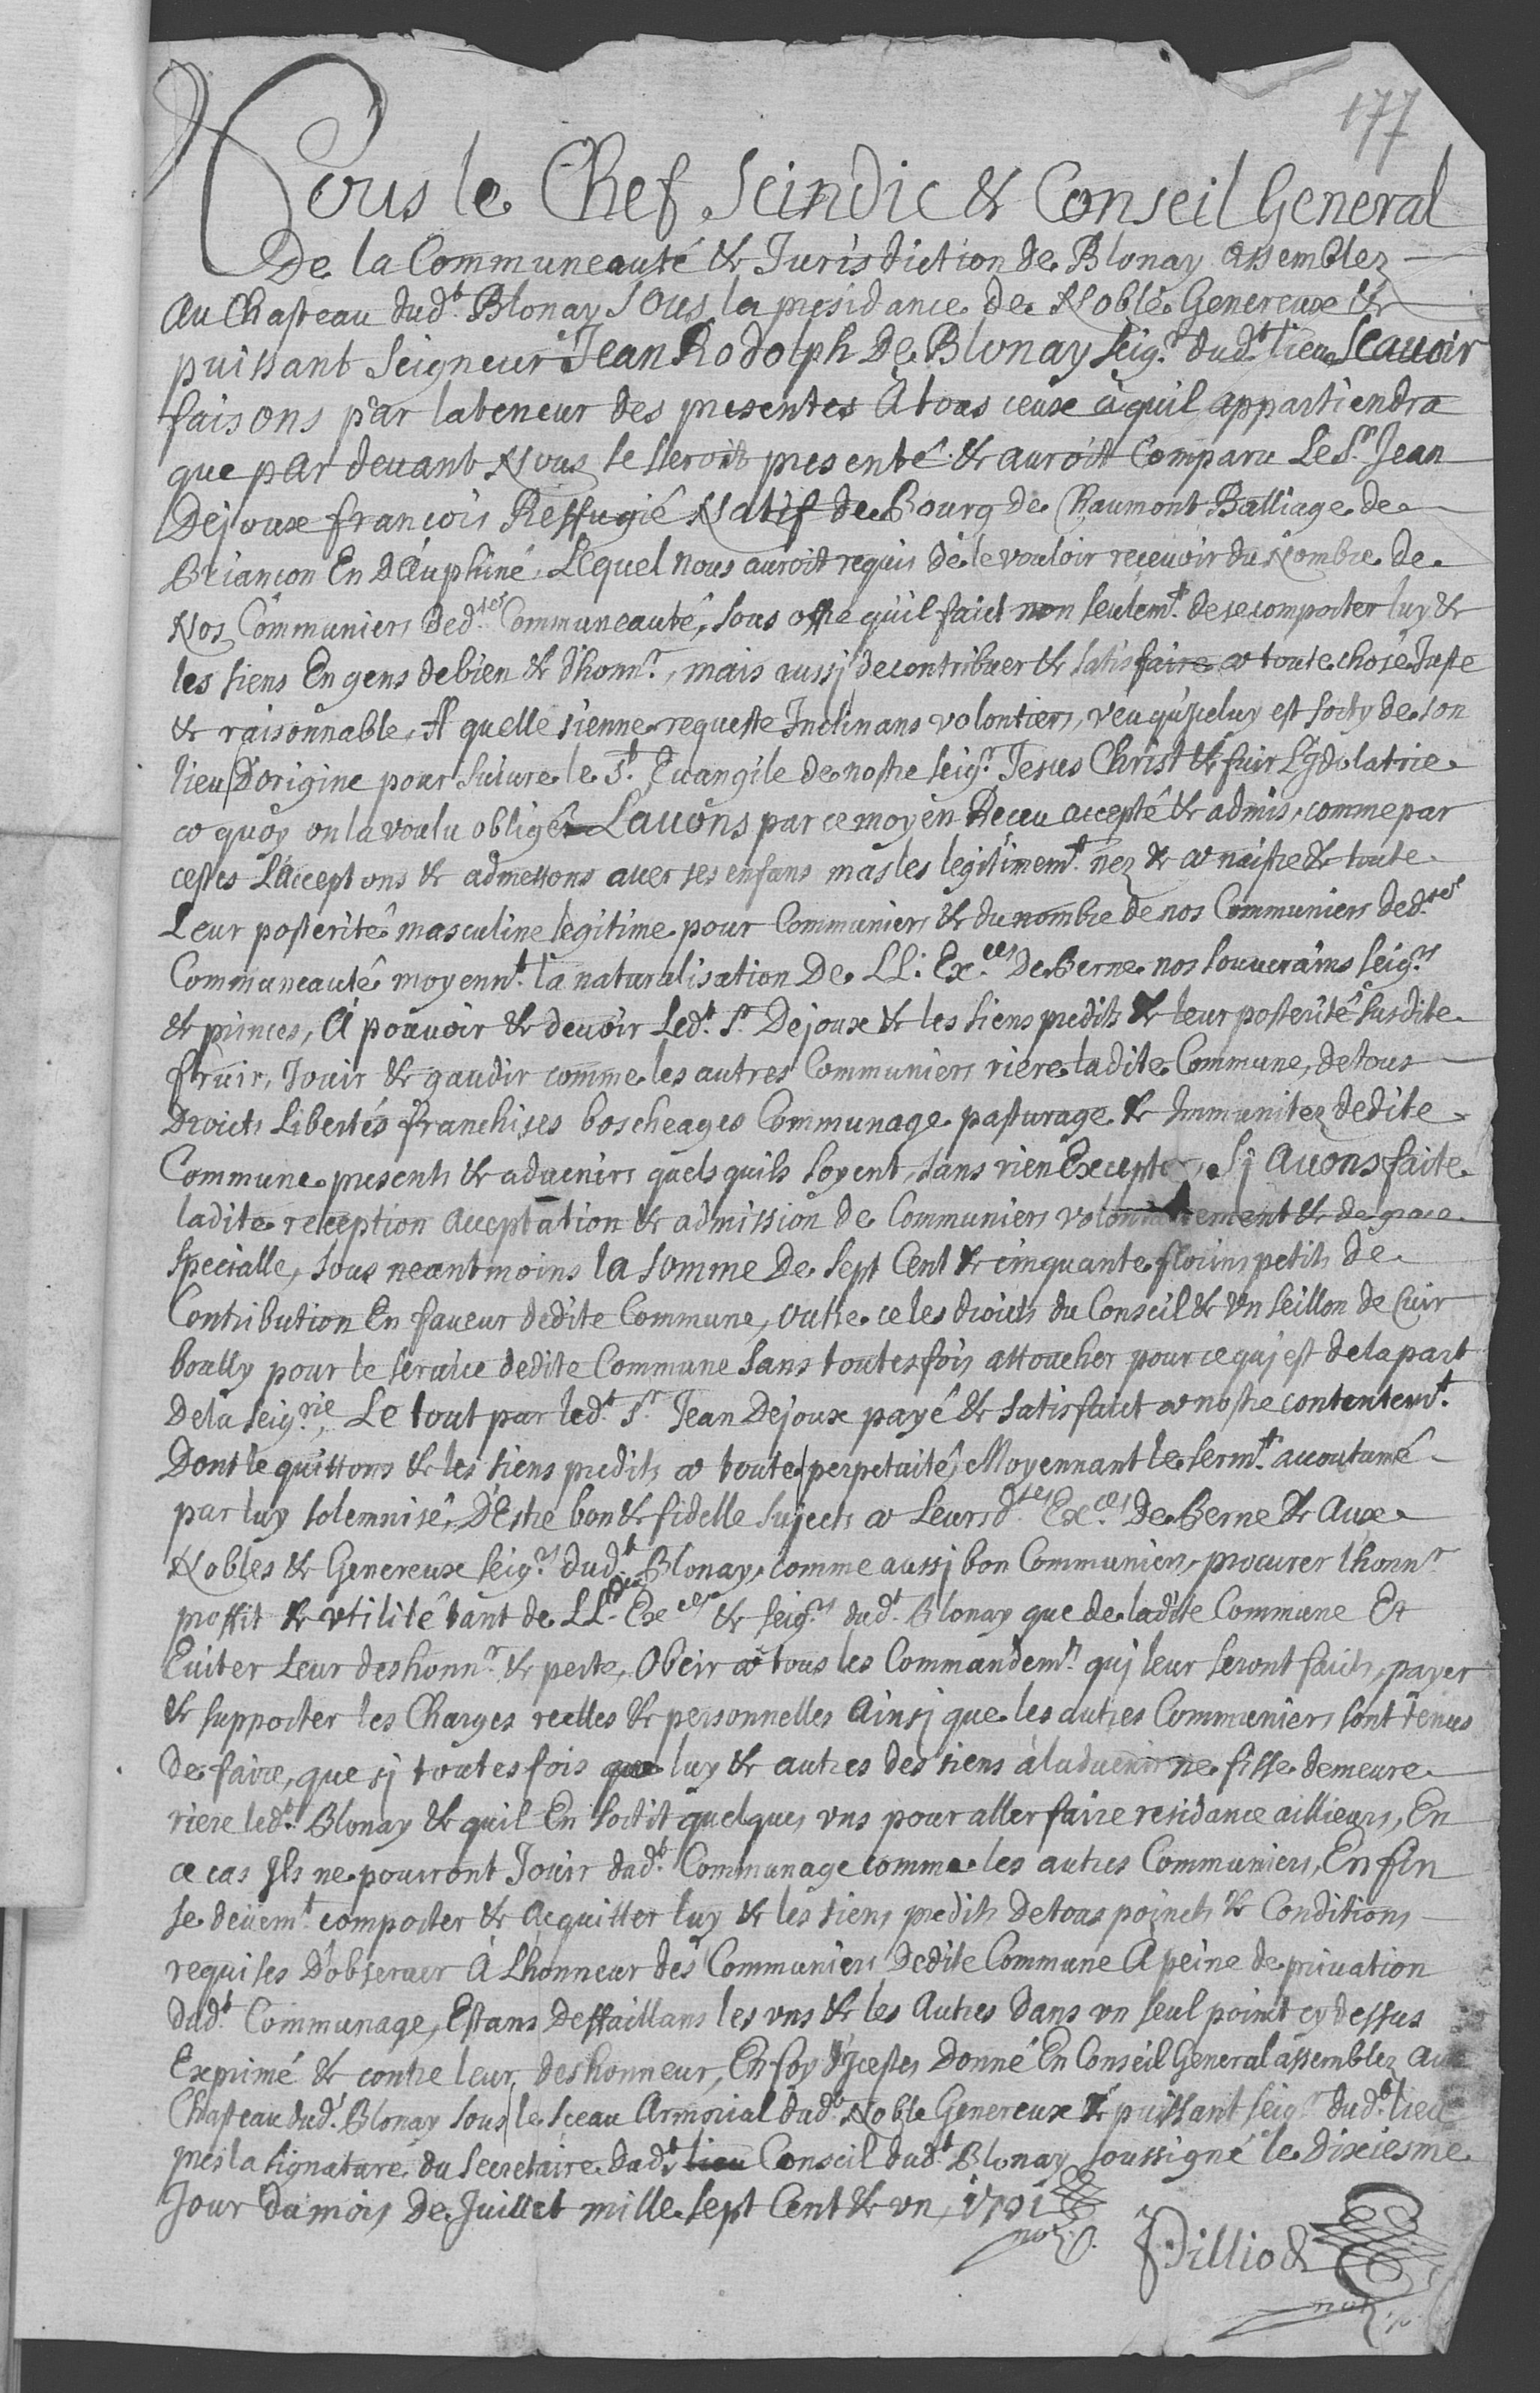 177
Nous le Chef Scindic & Conseil General
De la Communeauté & Jurisdiction de Blonay assemblez
au Chasteau dud.t Blonay sous la presidance de Noble Genereux &
puissant Seigneur Jean Rodolph De Blonay seig.r dud.t lieu Scavoir
faisons par la teneur des presentes A tous ceux à quil appartiendra
que par devant Nous se seroit presenté & auroit Comparu Le S.r Jean
Dejoux françois Reffugié Natif de Bourg de Chaumont Balliage de
Briançon En dauphiné, Lequel nous auroit requis de le vouloir recevoir du Nombre de
Nos Communiers ded.tes Communeauté, sous offre qu'il faict non seulem.t de se comporter luy &
les siens En gens de bien & d'honn.r, mais aussj de contribuer & satisfaire a toute chose Juste
& raisonnable, A quelle sienne requeste Inclinans volontiers, veu qu'Jceluy est sorty de son
lieu D'origine pour suivre le S.t Evangile de nostre seig.r Jesus Christ & fuir L'Jdolatrie
a quoy on la voulu obliger Lavons par ce moyen Receu accepté & admis, comme par
cestes L'acceptons & admettons avec ses enfans masles legitimem.t nez & a naistre & toute
Leur posterité masculine legitime pour Communiers & du nombre de nos Communiers ded.tes
Communeauté moyenn.t la naturalisation De LL. Ex.ces De Berne nos souverains seig.rs
& princes, A pouvoir & devoir Led.t S.r Dejoux & les siens predits & leur posterité susdite
fruir, Jouir & gaudir comme les autres Communiers riere ladite Commune, de tous
Droicts Libertés franchises boscheages Communage pasturage & Immunitez dedite
Commune presents & advenirs quels quils soyent, sans rien Excepter, Sj Avons faite
ladite reception Acceptation & admission de Communiers volontairement & de grace
specialle, sous neantmoins la somme De sept Cent & cinquante florins petits de
Contribution En faveur dedite Commune, outre ce les droicts du Conseil & Vn seillon de Cuir
boully pour le service dedite Commune sans toutesfois attoucher pour ce quj est de la part
De la seig.rie, Le tout par led.t S.r Jean Dejoux payé & satisfaict a nostre contentem.t
Dont le quittons & les siens predits a toute perpetuité, Moyennant le serm.t accoutumé
par luy solemnisé, D'Estre bon & fidelle sujects a Leursd.tes Ex.ces De Berne & Aux
Nobles & Genereux seig.rs dud.t Blonay, comme aussj bon Communier, procurer l'honn.r
proffit & vtilité tant de LL.dites Ex.ces & seig.rs dud.t Blonay que de ladite Commune Et
Eviter Leur deshonn.r & perte, Obeir a tous les Commandem.ts quj leur seront faicts, payer
& supporter les Charges reelles & personnelles Ainsj que les autres Communiers sont tenus
De faire, que sj toutesfois que luy & autres des siens à ladvenir ne fisse demeure
riere led.t Blonay & quil En sortit quelques vns pour aller faire residance ailleurs, En
ce cas Jls ne pourront Jouir dud.t Communage comme les autres Communiers, En fin
se devem.t comporter & Acquitter luy & les siens predits de tous poincts & Conditions
requises D'observer A L'honneur des Communiers Dedite Commune A peine de privation
dud.t Communage, Estans Deffaillans les vns & les Autres Dans vn seul poinct cy dessus
Exprimé & contre leur deshonneur, En foy d'Jcestes Donné En Conseil General assemblez au
Chasteau dud.t Blonay sous le sceau Armorial dud.t Noble Genereux & puissant seig.r dud.t lieu
pres la signature du Secretaire dud.t lieu Conseil dud.t Blonay soussigné le dixiesme
Jour du mois De Juillet mille sept Cent & vn, 1701
Pilliod